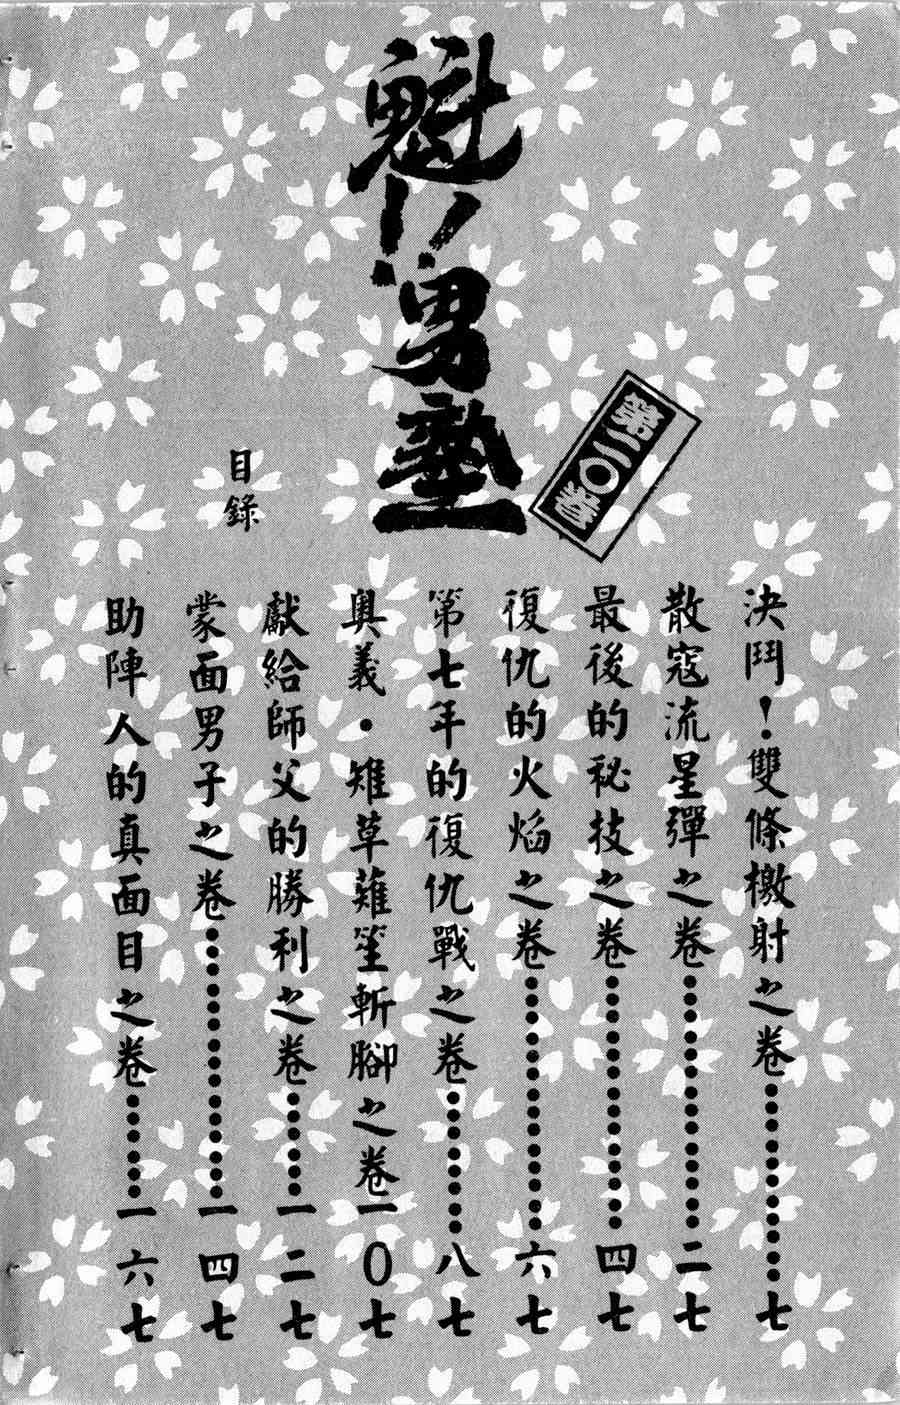 魁!!男塾
第二〇卷
目錄
決鬥!雙條檄射之卷……………七
散寇流星彈之卷……………二七
最後的秘技之卷……………四七
復仇的火焰之卷……………六七
第七年的復仇戰之卷…………八七
奧義・雉草薙笙斬腳之卷一〇七
獻給師父的勝利之卷………一二七
蒙面男子之卷……………一四七
助陣人的真面目之卷………一六七